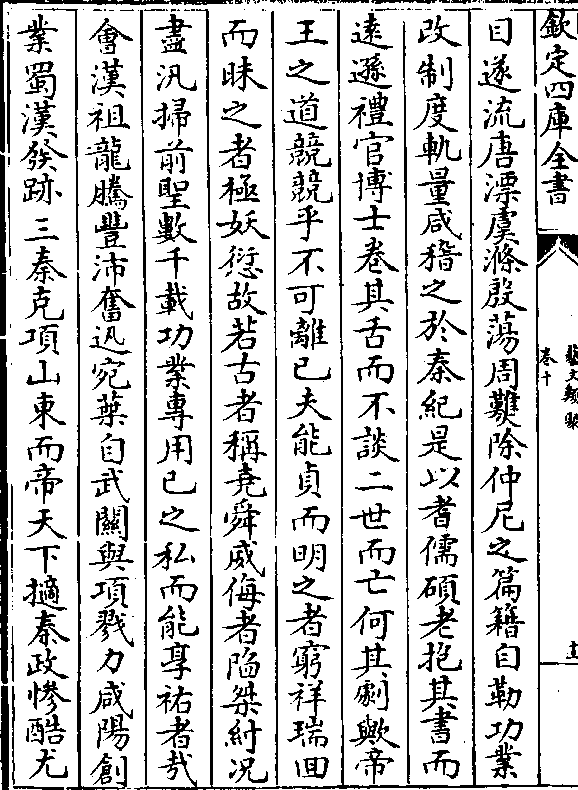 欽定四庫全書
藝文類聚
卷十
目遂流唐漂虞滌殷蕩周難除仲尼之篇籍自勒功業
改制度軌量咸稽之於秦紀是以耆儒碩老抱其書而
逺遜禮官博士卷其舌而不談二世而亡何其劇歟帝
王之道兢兢乎不可離已夫能貞而明之者窮祥瑞回
而昧之者極妖愆故若古者稱堯舜威侮者陷桀紂况
盡汛掃前聖數千載功業專用已之私而能享祐者哉
㑹漢祖龍騰豐沛奮迅宛葉自武關與項戮力咸陽創
業蜀漢發跡三秦克項山東而帝天下擿秦政慘酷尤